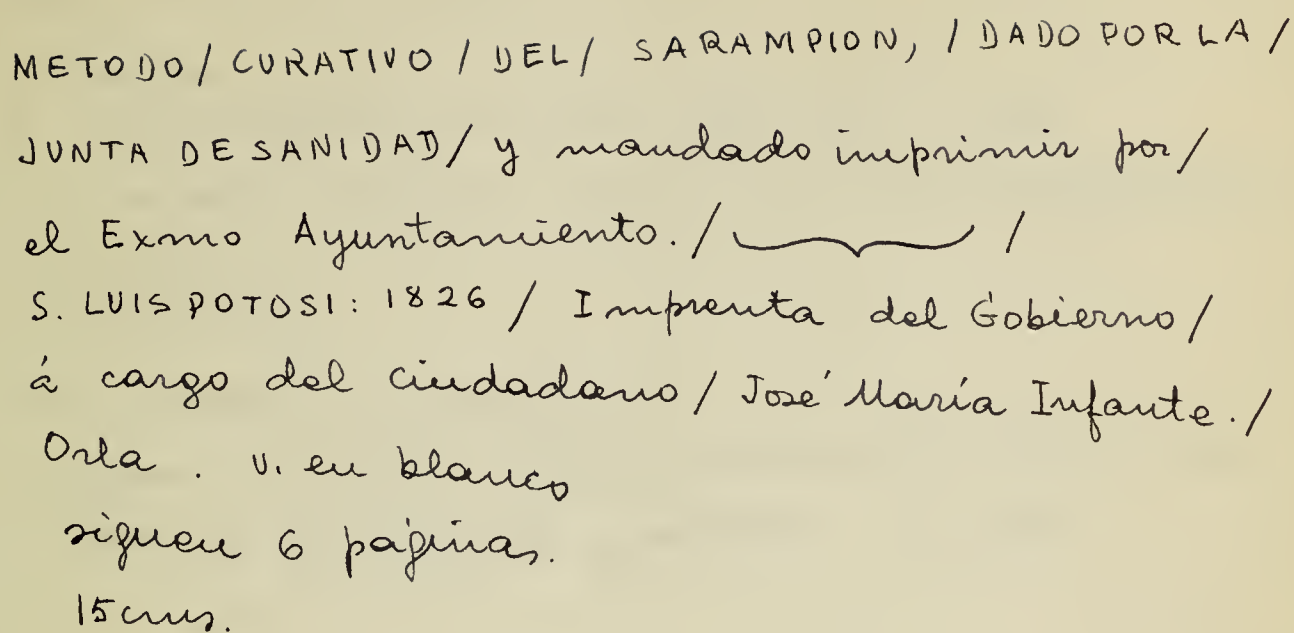 METODO / CURATIVO / DEL / SARAMPION, / DADO POR LA /
JUNTA DE SANIDAD / y mandado imprimir por /
el Exmo Ayuntamiento. / /
S. LUIS POTOSI: 1826 / Imprenta del Gobierno /
á cargo del ciudadano / José María Infante. /
Orla. v. en blanco
siguen 6 páginas.
15 cms.